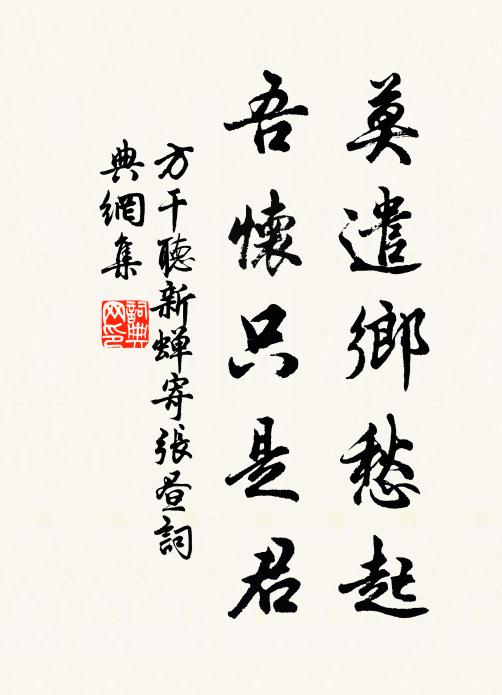 莫遣鄉愁起
吾懷只是君
方干聽新蟬寄張晝詞
典網集
詞典
网印